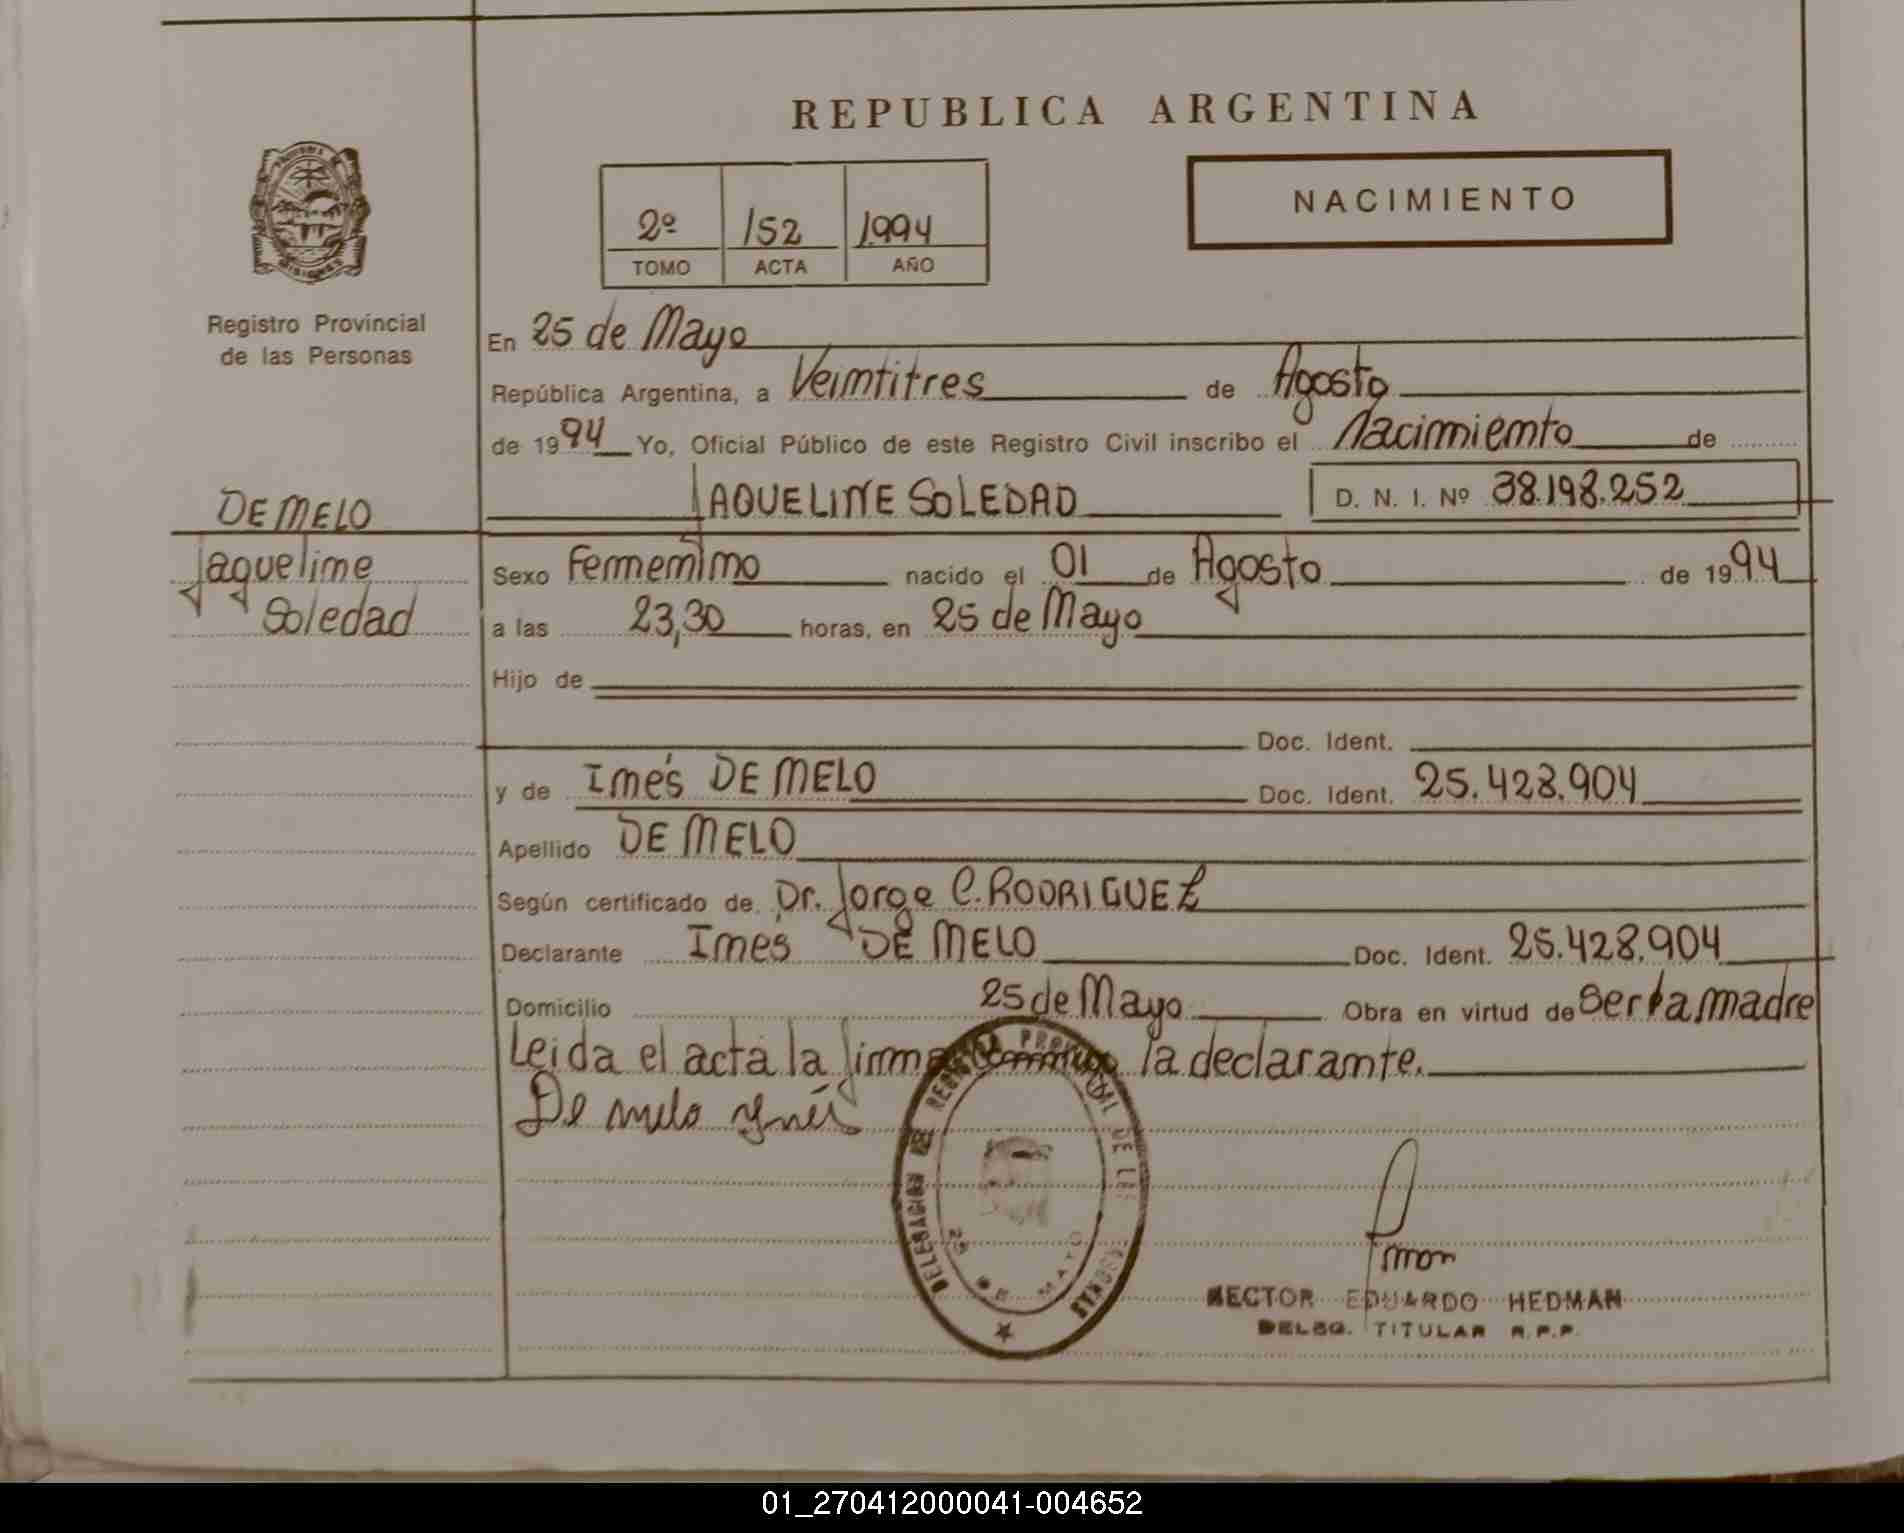 REPUBLICA ARGENTINA
2º 152 1994
TOMO ACTA AÑO
NACIMIENTO
Registro Provincial
de las Personas
DE MELO
Jaqueline
Soledad
En 25 de Mayo
República Argentina, a Veintitres de Agosto
de 1994 Yo, Oficial Público de este Registro Civil inscribo el Nacimiento de
JAQUELINE SOLEDAD D. N. I. Nº 38.198.252
Sexo Femenino nacido el 01 de Agosto de 1994
a las 23,30 horas, en 25 de Mayo
Hijo de
Doc. Ident.
y de Inés DE MELO Doc. Ident. 25.428.904
Apellido DE MELO
Según certificado de Dr. Jorge C. RODRIGUEZ
Declarante Ines DE MELO Doc. Ident. 25.428.904
Domicilio 25 de Mayo Obra en virtud de ser la madre
Leida el acta la firma la declarante.
De melo Ynés
DELEGACION REGISTRO PROVINCIAL DE LAS PERSONAS
25 DE MAYO
HECTOR EDUARDO HEDMAN
DELEG. TITULAR R.P.P.
01_270412000041-004652